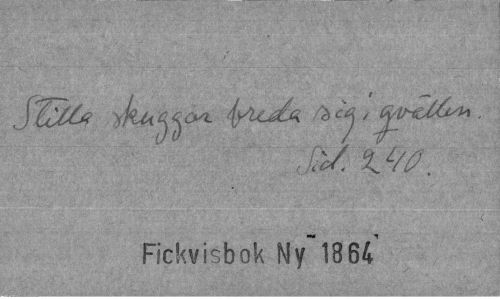 Stilla skuggor breda sig i qvällen.
Sid. 240.
Fickvisbok Ny 1864